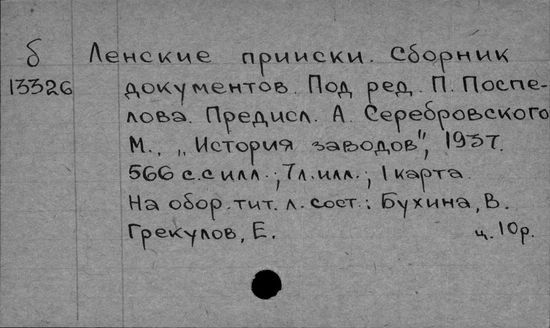 б Ленские прииски. Сборник
13326 документов. Под ред. П. Поспе-
лова. Предисл. А. Серебровского
М., „История заводов", 1937.
566 с.с илл.; 7 л. илл.; 1 карта.
На обор. тит. л. сост.: Бухина, В.
Грекулов, Е. ц. 10р.